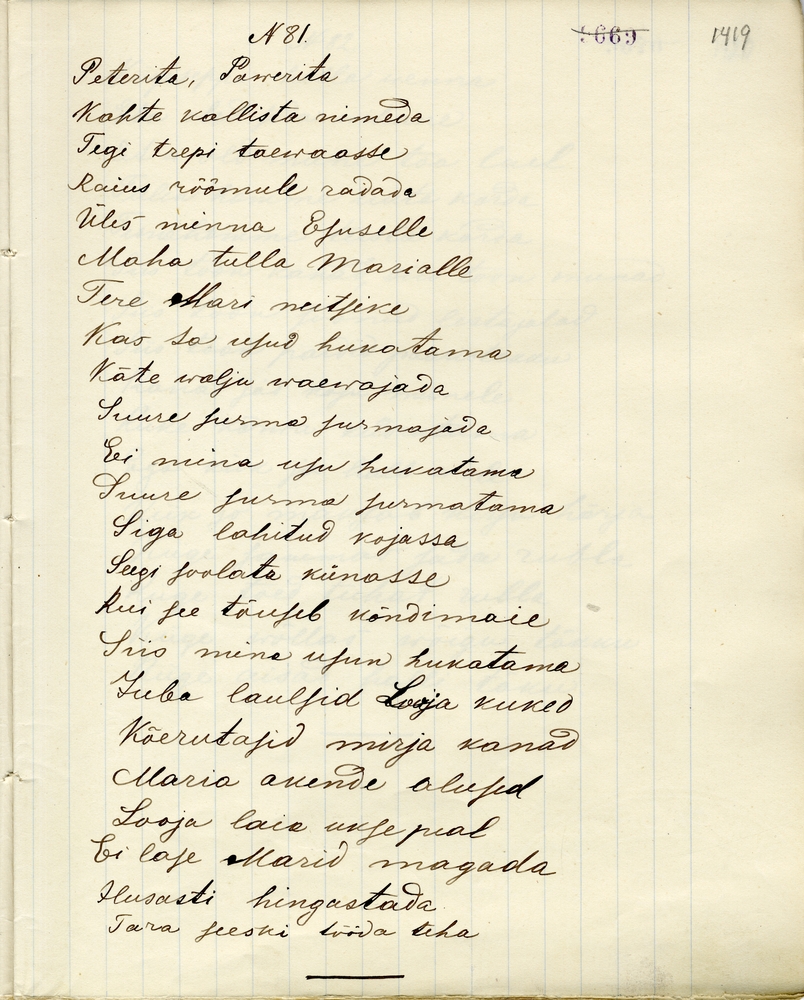 N 81.
5669
1419
Peterita, Pawerita
Kahte kallista nimeda
Tegi trepi taewaasse
Raius rõõmule radada
Üles minna Esuselle
Maha tulla Marialle
Tere Mari neitsike
Kas sa usud hukatama
Käte walju waewajada
Suure surma surmajada
Ei mina usu hukatama
Suure surma surmatama
Siga lahitud kojassa
Seegi soolata künasse
Kui see tõuseb kõndimaie
Siis mina usun hukatama
Juba laulsid Looja kuked
Kõerutasid mirja kanad
Maria akende alused
Looja laia ukse peal
Ei lase Marid magada
Ilusasti hingastada
Tara seeski tööda teha